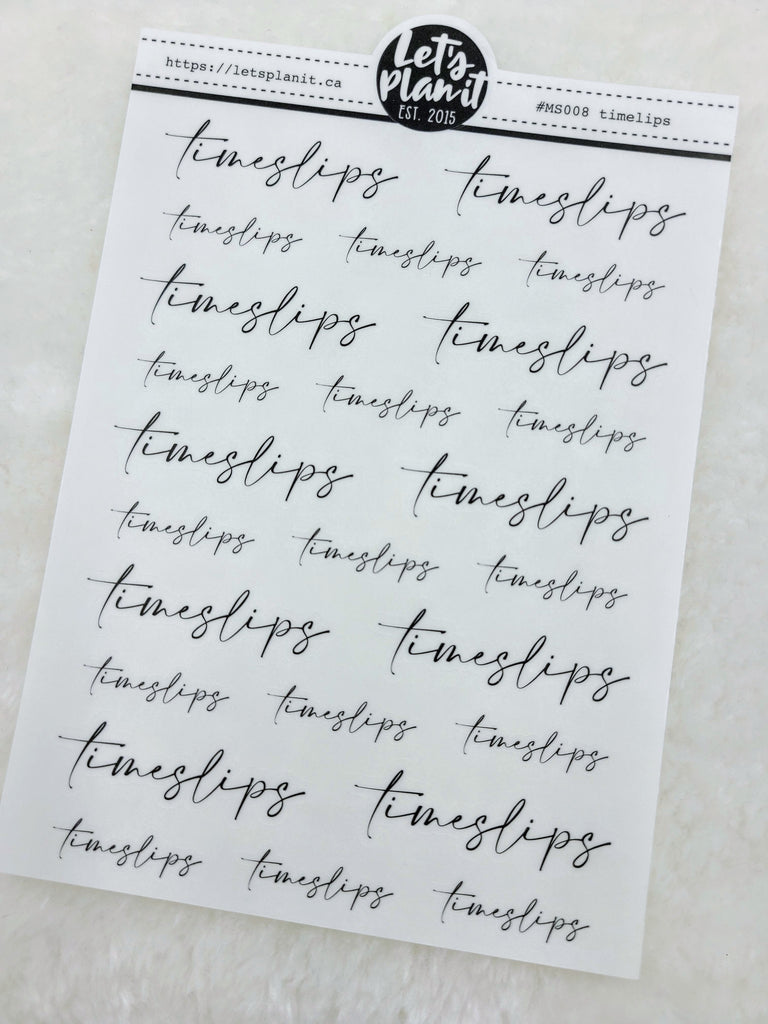 https://letsplanit.ca
Let's
plan it
EST. 2015
#MS008 timelips
timeslips timeslips
timeslips timeslips timeslips
timeslips timeslips
timeslips timeslips timeslips
timeslips timeslips
timeslips timeslips timeslips
timeslips timeslips
timeslips timeslips timeslips
timeslips timeslips
timeslips timeslips timeslips